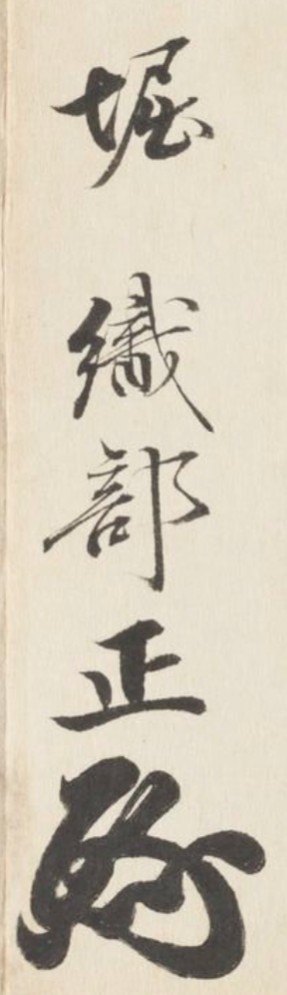 堀織部正